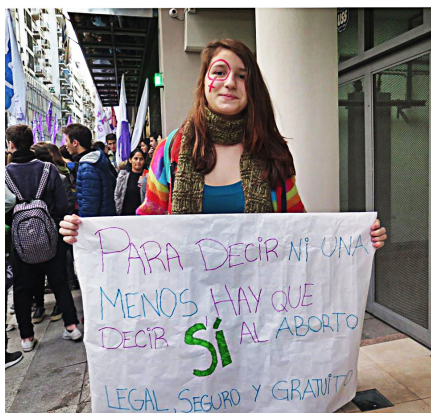 PARA DECIR NI UNA
MENOS HAY QUE
DECIR SÍ AL ABORTO
LEGAL, SEGURO Y GRATUITO